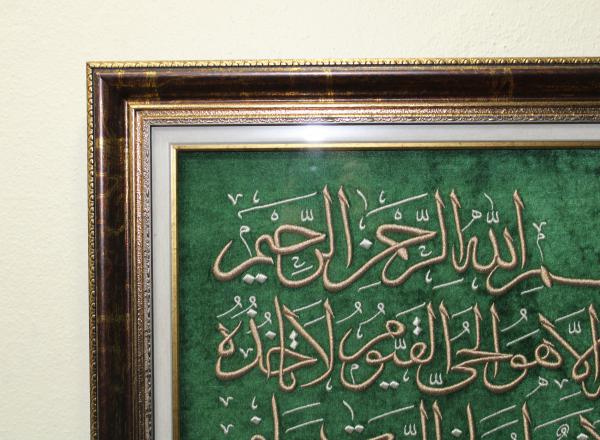 بسم الله الرحمن الرحيم
إلا هو الحي القيوم لا تأخذه